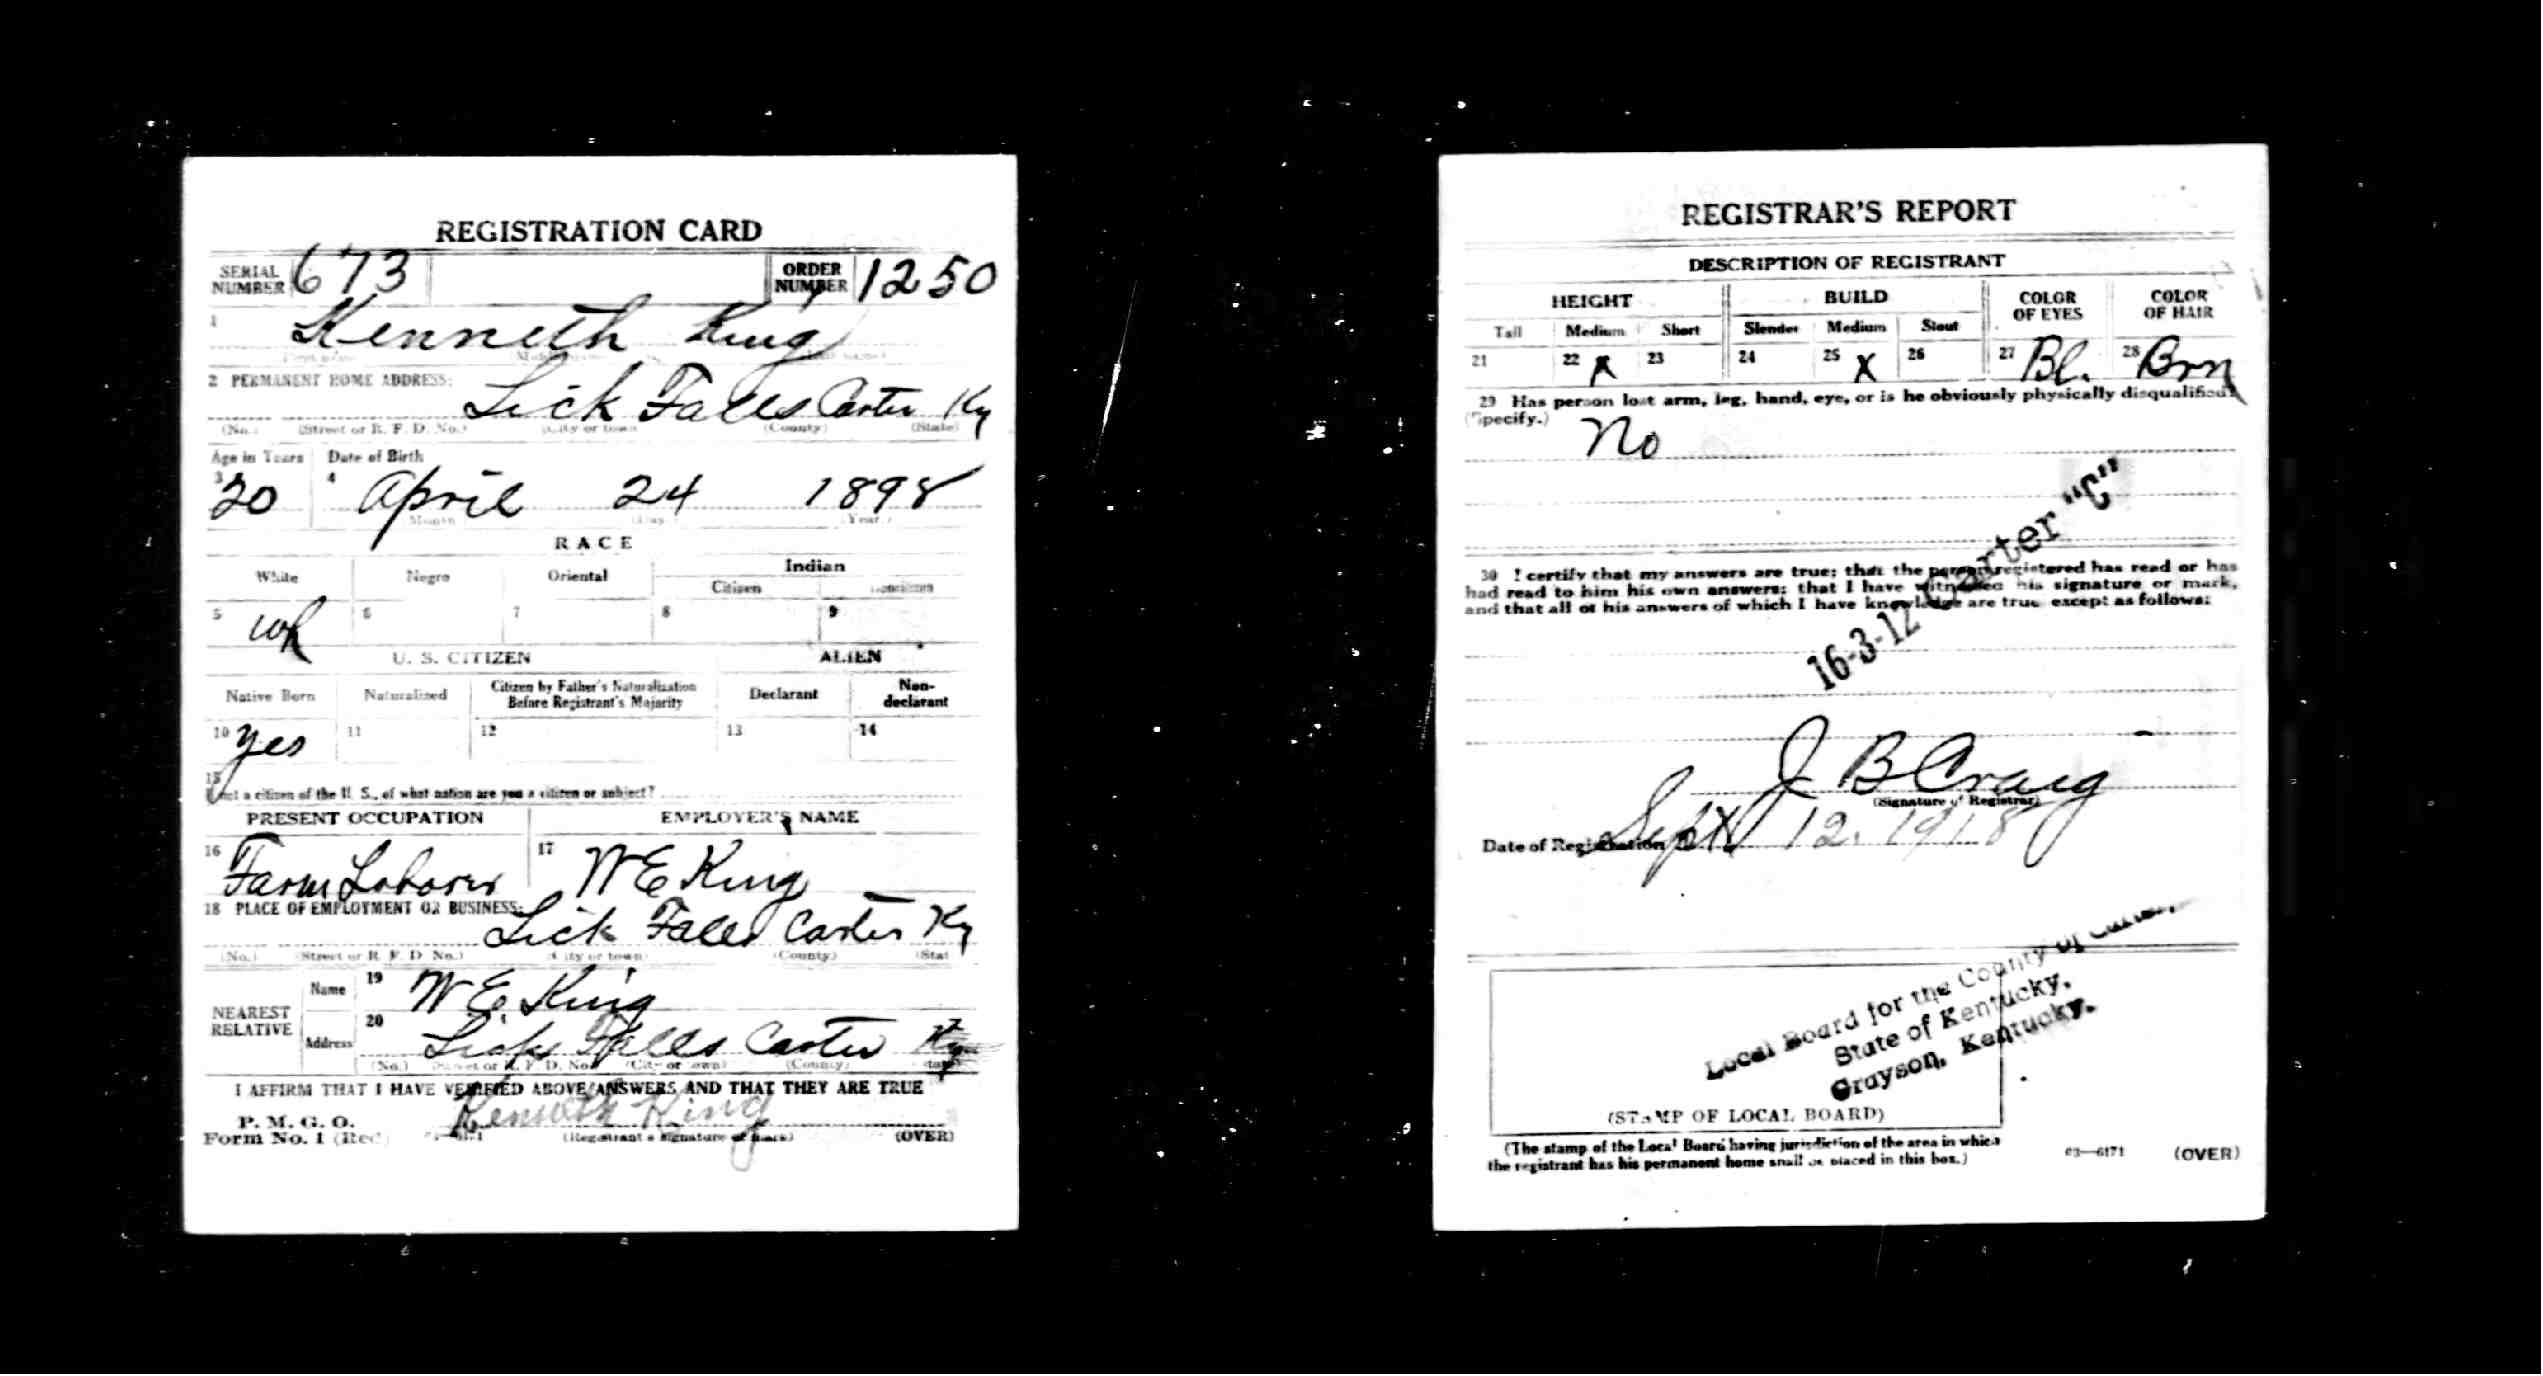 REGISTRATION CARD
SERIAL NUMBER 673 ORDER NUMBER 1250
1 Kenneth King
2 PERMANENT HOME ADDRESS:
Lick Falls Carter Ky
(No.) (Street or R. F. D. No.) (City or town) (County) (State)
Age in Years Date of Birth
3 20 4 April 24 1898
Month (Day.) (Year.)
RACE
White Negro Oriental Indian
Citizen Noncitizen
5 wh 6 7 8 9
U. S. CITIZEN ALIEN
Native Born Naturalized Citizen by Father's Naturalization Before Registrant's Majority Declarant Non-declarant
10 yes 11 12 13 14
15
If not a citizen of the U. S., of what nation are you a citizen or subject?
PRESENT OCCUPATION EMPLOYER'S NAME
16 Farm Laborer 17 W E King
18 PLACE OF EMPLOYMENT OR BUSINESS:
Lick Falls Carter Ky
(No.) (Street or R. F. D. No.) (City or town) (County) (Stat
NEAREST RELATIVE Name 19 W E. King
Address 20 Lick Falls Carter Ky
(No.) (Street or R. F. D. No.) (City or town) (County) (State)
I AFFIRM THAT I HAVE VERIFIED ABOVE ANSWERS AND THAT THEY ARE TRUE
P. M. G. O.
Form No. 1 (Red) Kenneth King
(Registrant's signature or mark) (OVER)
REGISTRAR'S REPORT
DESCRIPTION OF REGISTRANT
HEIGHT BUILD COLOR OF EYES COLOR OF HAIR
Tall Medium Short Slender Medium Stout
21 22 X 23 24 25 X 26 27 Bl. 28 Brn
29 Has person lost arm, leg, hand, eye, or is he obviously physically disqualified?
(Specify.) No
30 I certify that my answers are true; that the person registered has read or has
had read to him his own answers; that I have witnessed his signature or mark,
and that all of his answers of which I have knowledge are true except as follows:
16-3-12 Carter "C"
J B Craig
(Signature of Registrar)
Date of Registration Sept 12. 1918
Local Board for the County of Carter,
State of Kentucky,
Grayson, Kentucky.
(STAMP OF LOCAL BOARD)
(The stamp of the Local Board having jurisdiction of the area in which
the registrant has his permanent home shall be placed in this box.)
03—6171 (OVER)